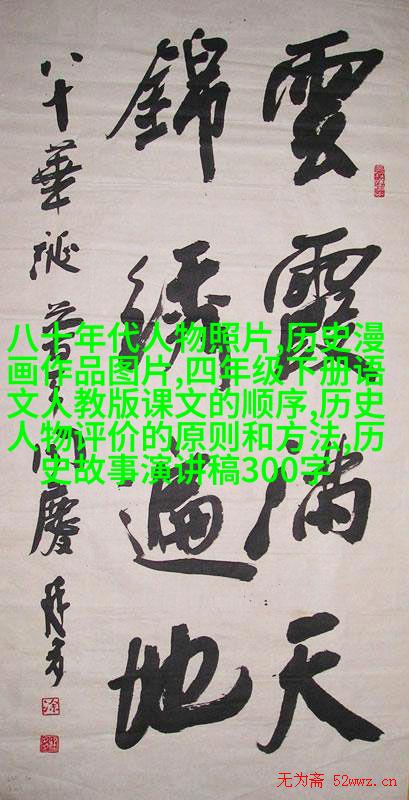 雲霞满天
錦綉遍地
八十華诞
八十年代人物照片,历史漫
画作品图片,四年级下册语
文人教版课文的顺序,历史
人物评价的原则和方法,历
史故事演讲稿300字
无为斋 52wwz.cn